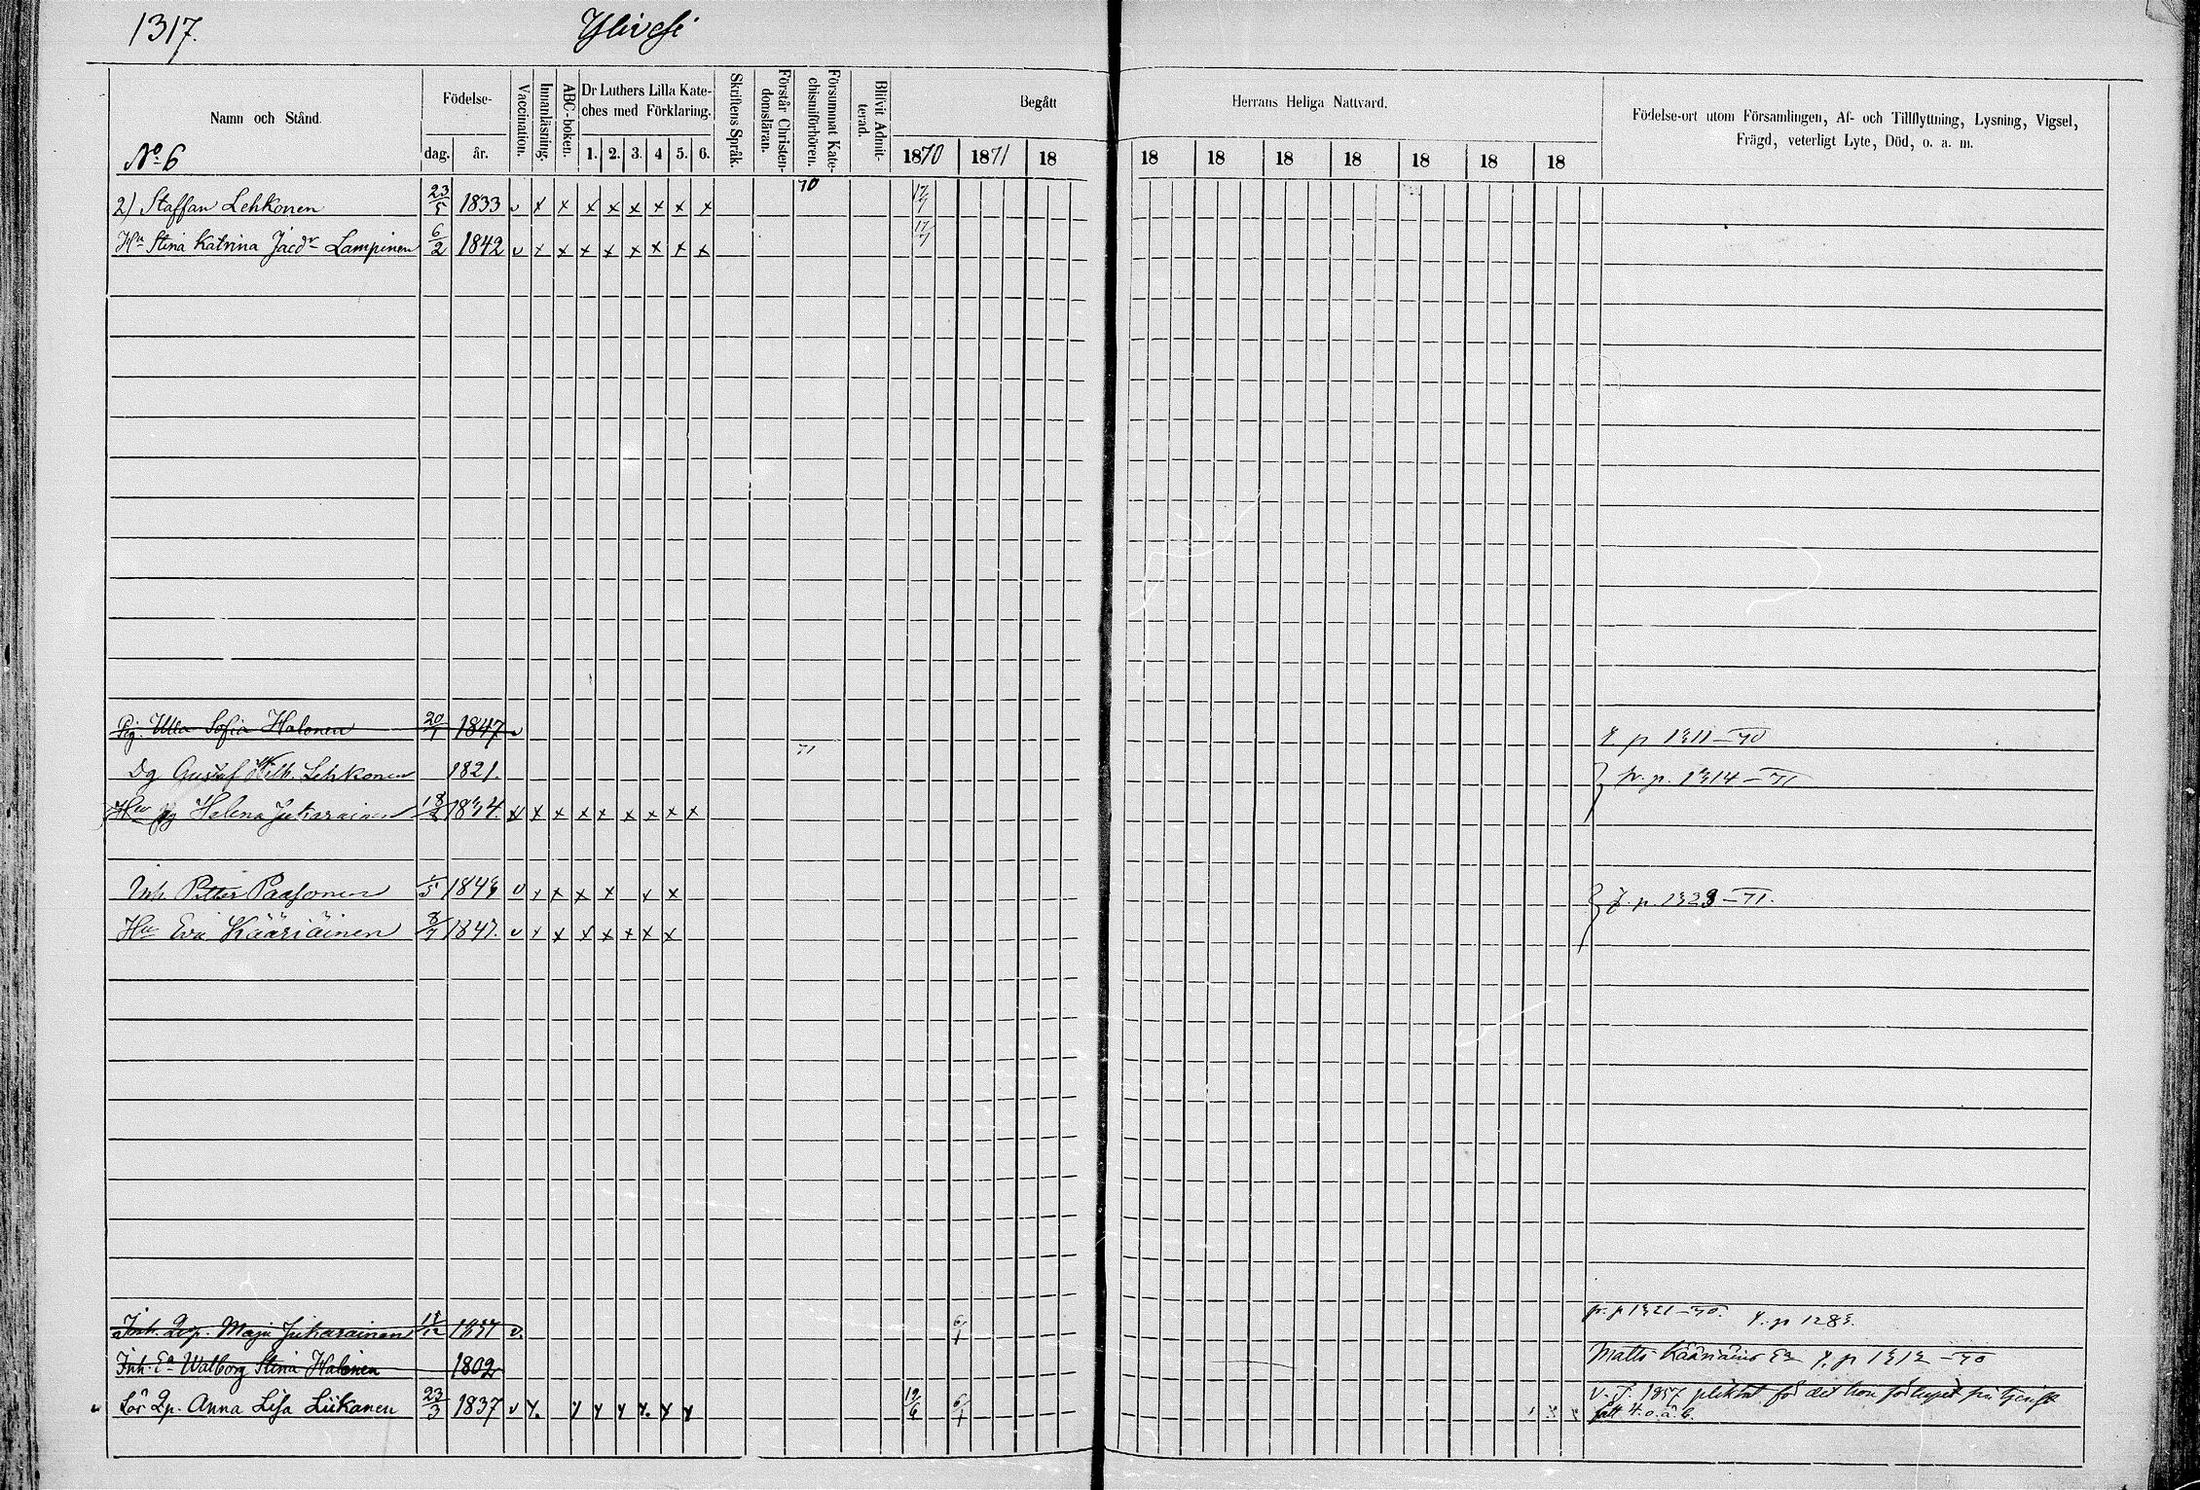 1317. Ylivesi
Namn och Stånd.
No 6
Födelse-
dag. år.
Vaccination.
Innanläsning.
ABC-boken.
Dr Luthers Lilla Kate-
ches med Förklaring.
1. 2. 3. 4 5. 6.
Skriftens Språk.
Förstår Christen-
domsläran.
Försummat Kate-
chismiförhören.
Blifvit Admit-
terad.
Begått Herrans Heliga Nattvard.
1870 1871 18 18 18 18 18 18 18 18
Födelse-ort utom Församlingen, Af- och Tillflyttning, Lysning, Vigsel,
Frägd, veterligt Lyte, Död, o. a. m.
2) Staffan Lehkonen 23/5 1833 v x x x x x x x x 70 17/7
Hu Stina Katrina Jacdr Lampinen 6/2 1842 v x x x x x x x x 17/7
Pig. Ulla Sofia Halonen 20/1 1847 v y. p 1311-70
Dg Gustaf Wilh. Lehkonen 1821. 71 fr. p. 1314-71
Hu Helena Jukarainen 1834. x x x x x x x x x
Inh. Petter Paasonen 1843 v x x x x x x y. p. 1323-71.
Hu Eva Kääriäinen 8/7 1847. v x x x x x x x
Inh. Qvp. Maja Jukarainen 1837 v. 6/1 fr. p 1321-70. y. p 1283.
Inh. Ea Walborg Stina Halonen 1802 Matts Kääriäins Ea y. p 1312-70
Lös Qp. Anna Lisa Liikanen 23/3 1837 v x. x x x x x x 19/6 6/1 v. T. 1857 pliktat för det hon förlupit sin tjenst
fått 4. o. å. b.